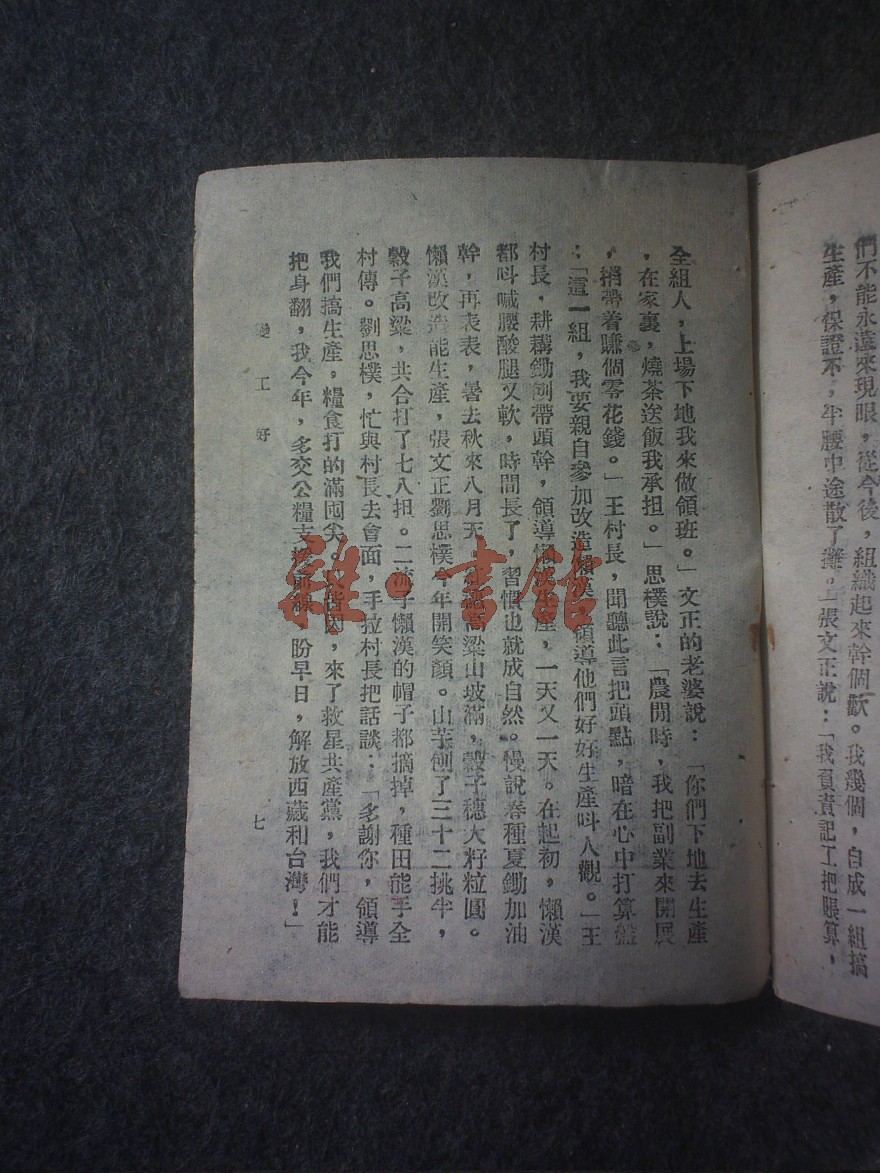 們不能永遠來現眼，從今後，組織起來幹個歡。我幾個，自成一組搞
生產，保證不，半腰中途散了攤。」張文正說：「我負責記工把賬算，
全組人，上場下地我來做領班。」文正的老婆說：「你們下地去生產
，在家裏，燒茶送飯我承担。」思樸說：「農閒時，我把副業來開展
，捎帶着賺個零花錢。」王村長，聞聽此言把頭點，暗在心中打算盤
：「這一組，我要親自參加改造懶漢，領導他們好好生產呌人觀。」王
村長，耕耩鋤刨帶頭幹，領導懶漢生產，一天又一天。在起初，懶漢
都呌喊腰酸腿又軟，時間長了，習慣也就成自然。慢說春種夏鋤加油
幹，再表表，暑去秋來八月天，高粱山坡滿，穀子穗大籽粒圓。
懶漢改造能生產，張文正劉思樸今年開笑顏。山芋刨了三十二挑半，
穀子高粱，共合打了七八担。二流子懶漢的帽子都摘掉，種田能手全
村傳。劉思樸，忙與村長去會面，手拉村長把話談：「多謝你，領導
我們搞生產，糧食打的滿囤尖。皆因，來了救星共產黨，我們才能
把身翻，我今年，多交公糧支援前線，盼早日，解放西藏和台灣！」
變工好
七
雜·書館